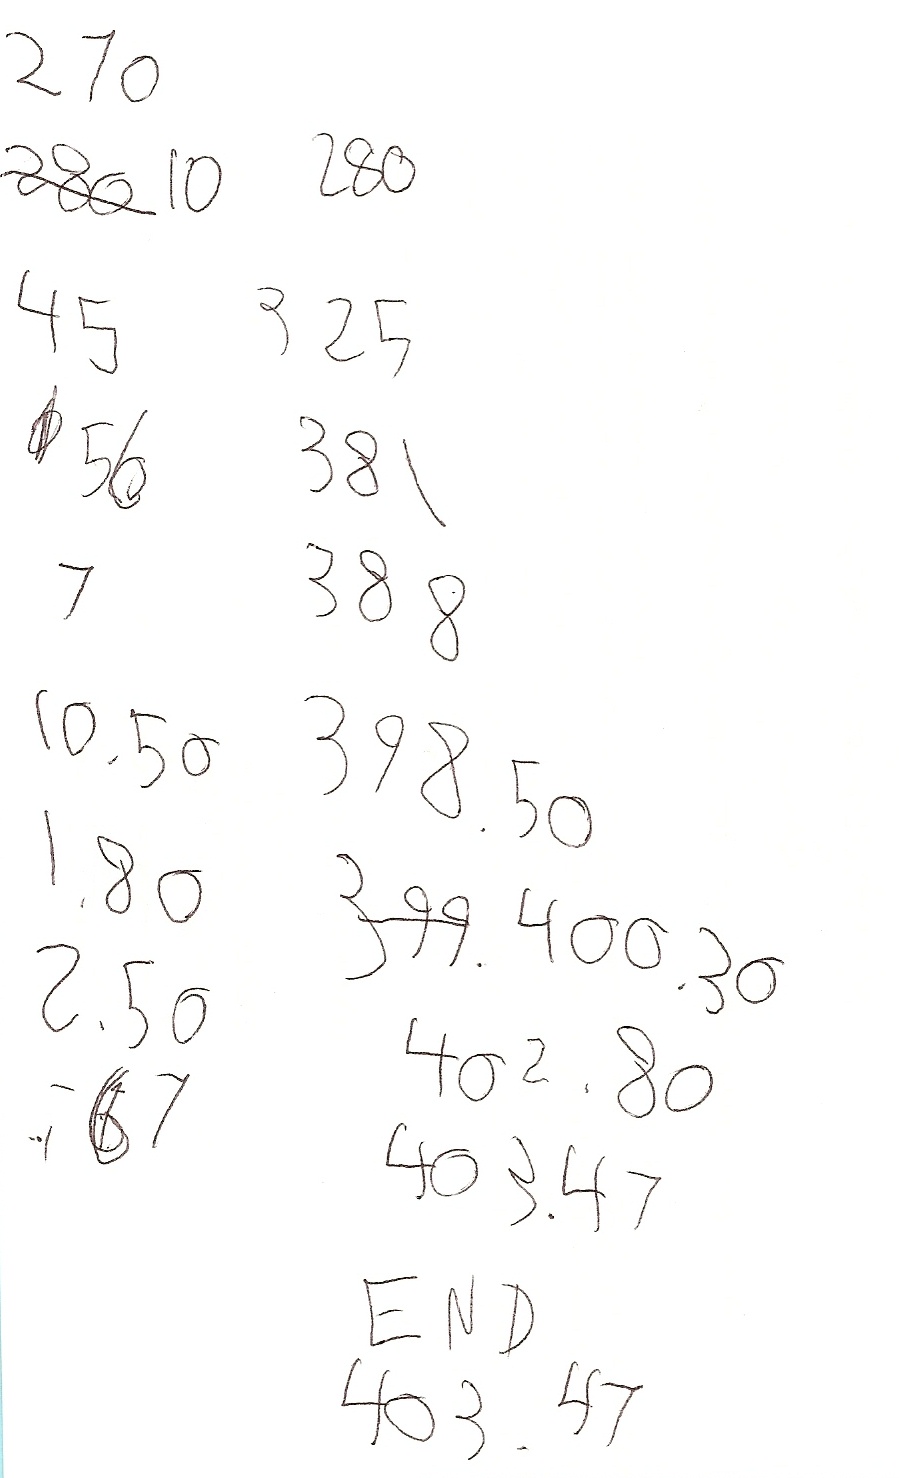 270
280 10 280
45 325
56 381
7 388
10.50 398.50
1.80 399. 400.30
2.50 402.80
.67 403.47
END
403.47